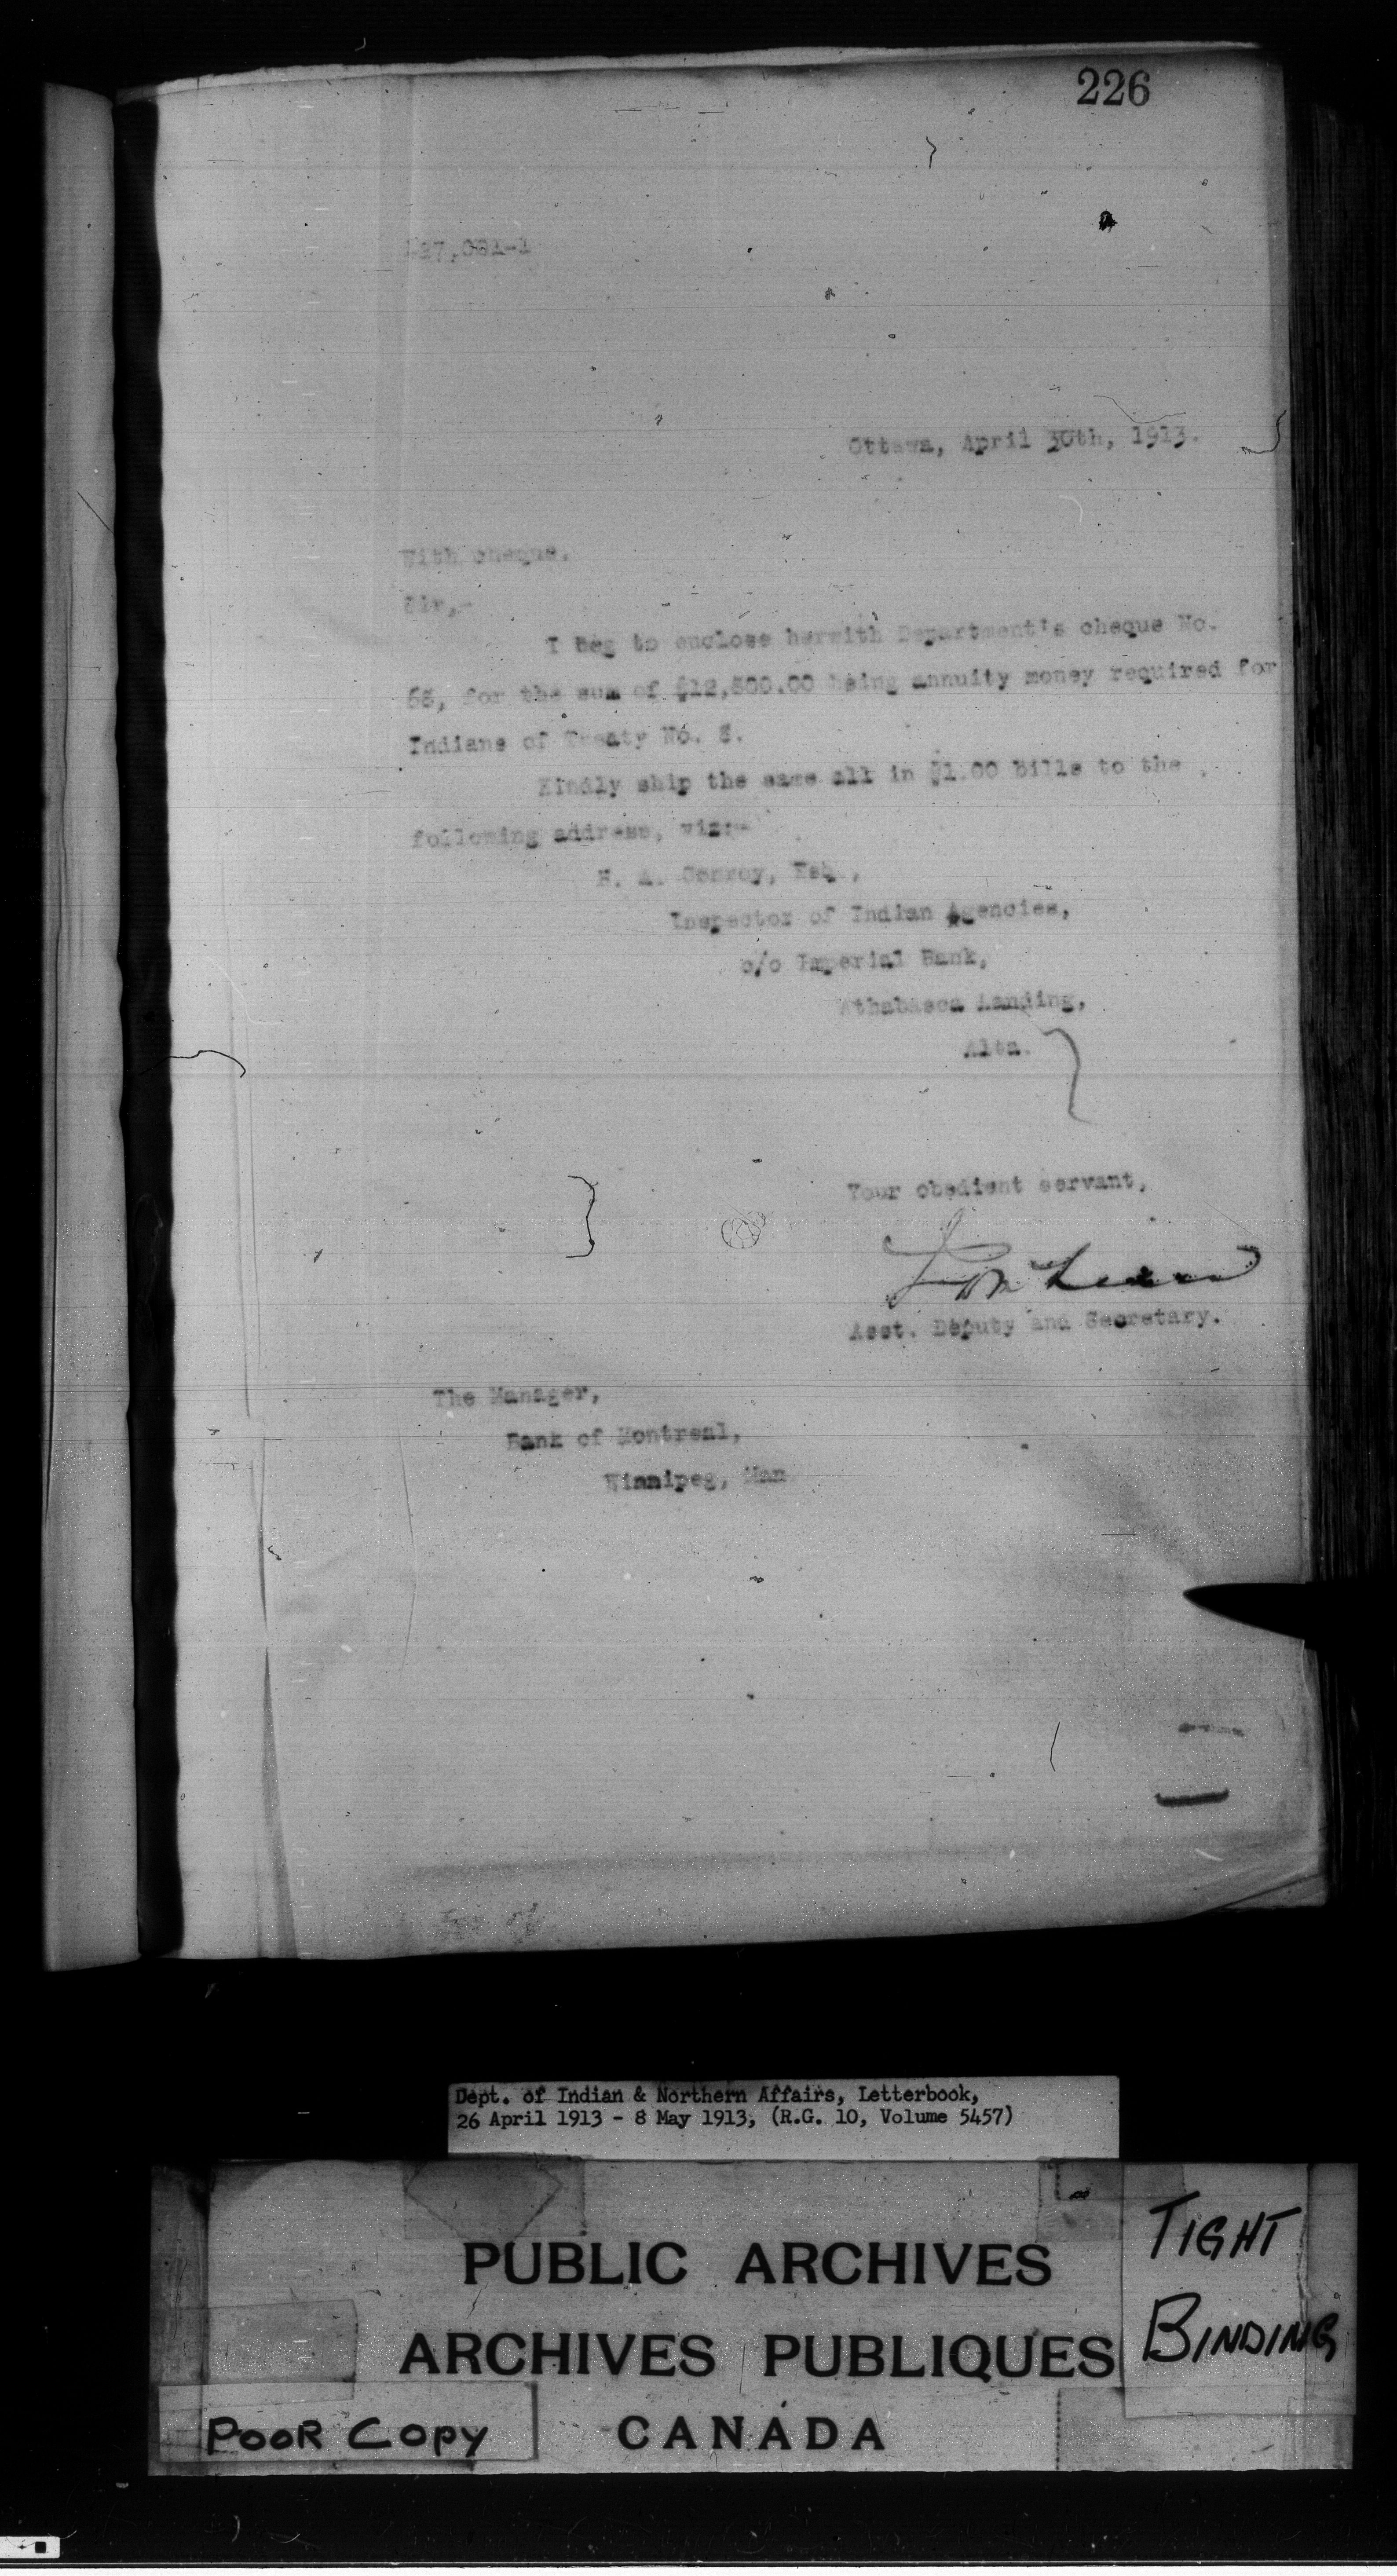 226
Ottawa, April 30th, 1913.
With cheque.
Sir,-
I beg to enclose herwith Department's cheque No.
for the sum of $12,500.00 being annuity money required for
Indians of Treaty No. 8.
Kindly ship the same all in $1.00 bills to the
following address, viz:-
H. A. Conroy, Esq.,
Inspector of Indian Agencies,
c/o Imperial Bank,
Athabasca Landing,
Alta.
Your obedient servant,
Asst. Deputy and Secretary.
The Manager,
Bank of Montreal,
Winnipeg, Man.
Dept. of Indian & Northern Affairs, Letterbook,
26 April 1913 - 8 May 1913, (R.G. 10, Volume 5457)
PUBLIC ARCHIVES
ARCHIVES PUBLIQUES
CANADA
TIGHT
BINDING
POOR COPY